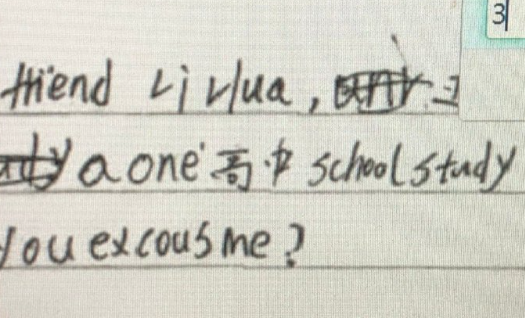 3
friend Li Hua,
a one 高中 school study
you excous me?